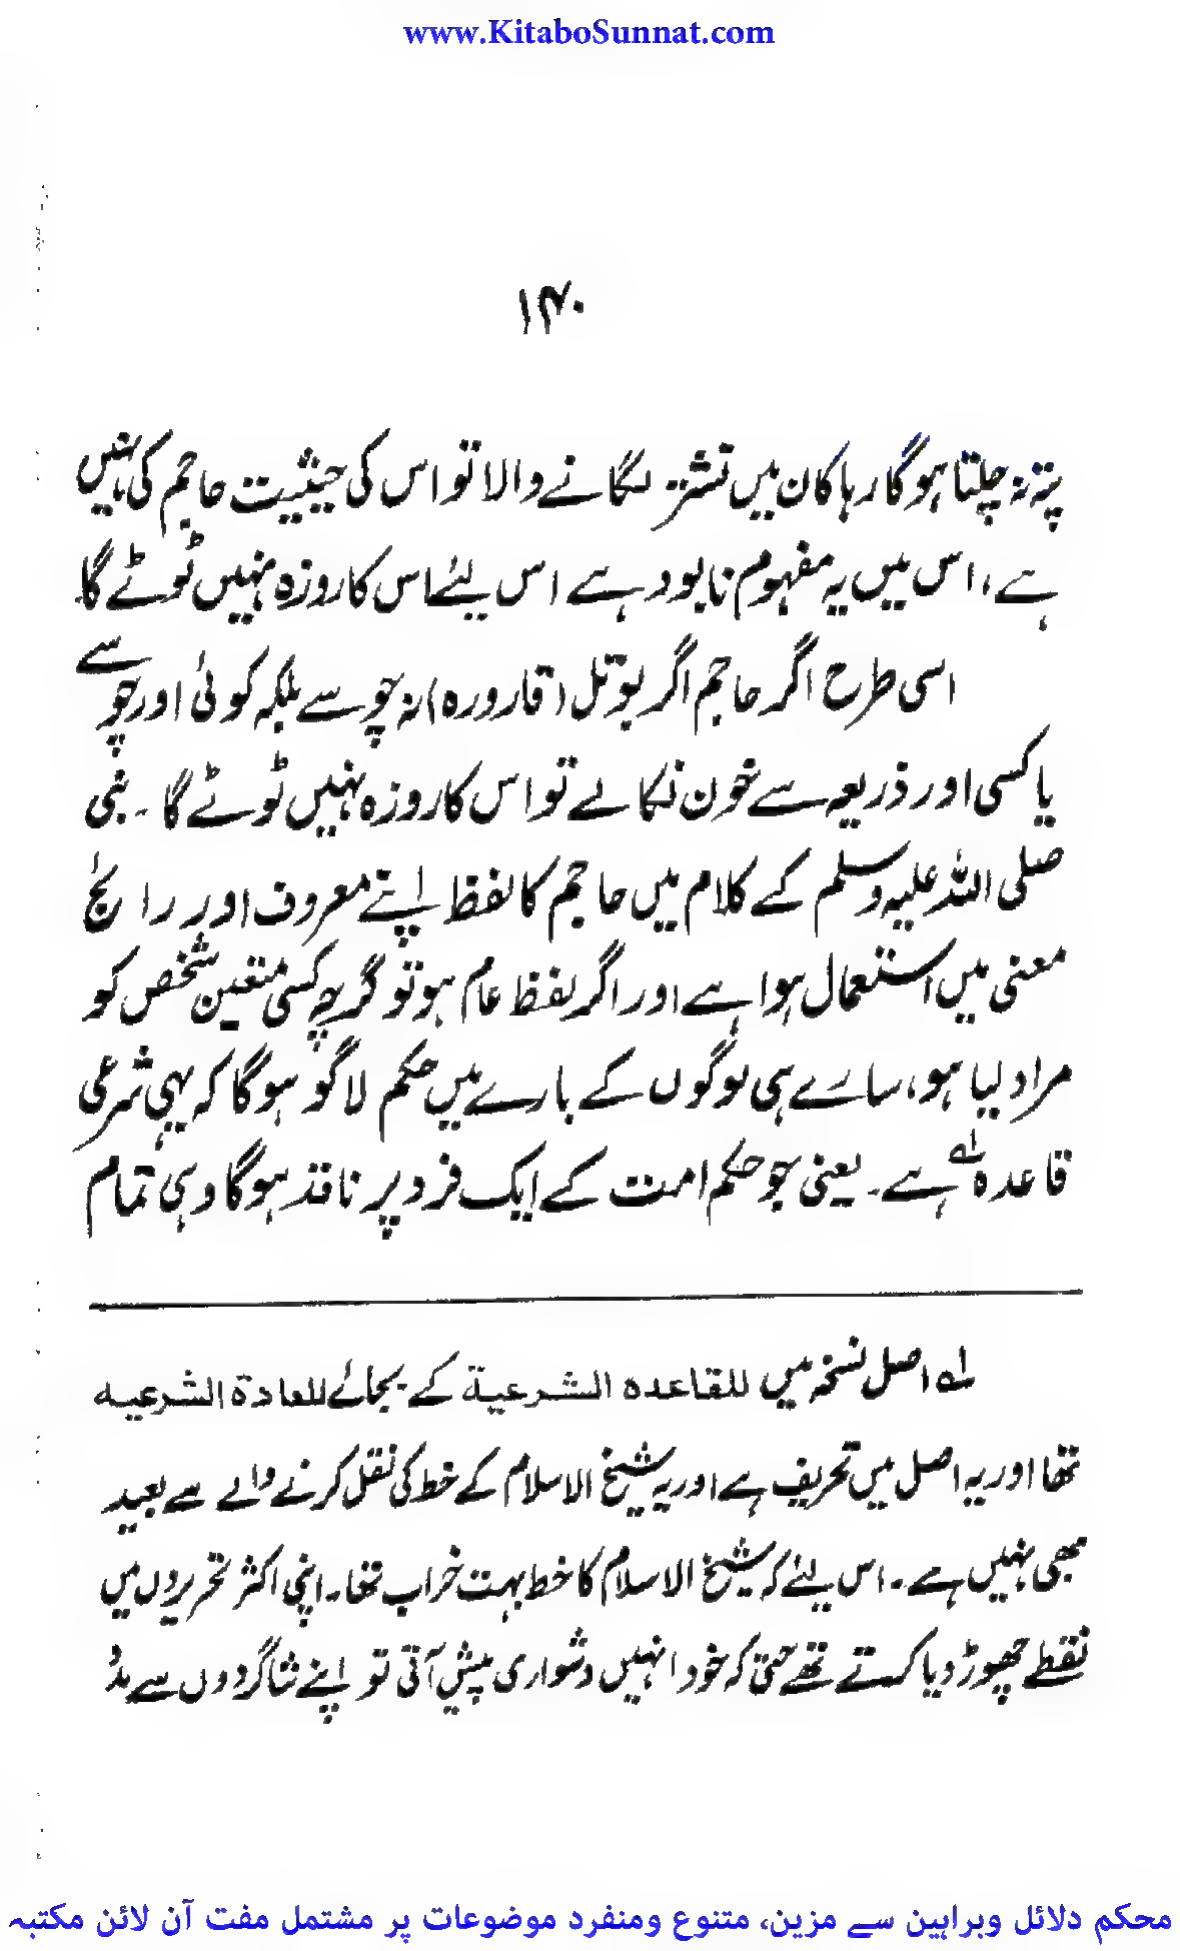 www.KitaboSunnat.com
۱۴۰
پتہ نہ چلتا ہوگا رہا کان میں نشتر لگانے والا تو اس کی حیثیت حاجم کی نہیں
ہے، اس میں یہ مفہوم نابود ہے اس لئے اس کا روزہ نہیں ٹوٹے گا۔
اسی طرح اگر حاجم اگر بوتل (قارورہ) نہ چوسے بلکہ کوئی اور چوسے
یا کسی اور ذریعہ سے خون نکالے تو اس کا روزہ نہیں ٹوٹے گا ۔ نبی
صلی اللہ علیہ وسلم کے کلام میں حاجم کا لفظ اپنے معروف اور رائج
معنی میں استعمال ہوا ہے اور اگر لفظ عام ہو تو گرچہ کسی متعین شخص کو
مراد لیا ہو، سارے ہی لوگوں کے بارے میں حکم لاگو ہوگا کہ یہی شرعی
قاعدہ لہ ہے ۔ یعنی جو حکم امت کے ایک فرد پر نافذ ہوگا وہی تمام
لہ اصل نسخہ میں للقاعدہ الشرعیة کے بجائے للعادة الشرعیہ
تھا اور یہ اصل میں تحریف ہے اور یہ شیخ الاسلام کے خط کی نقل کرنے والے سے بعید
بھی نہیں ہے۔ اس لئے کہ شیخ الاسلام کا خط بہت خراب تھا۔ اپنی اکثر تحریروں میں
نقطے چھوڑ دیا کرتے تھے حتی کہ خود انہیں دشواری پیش آتی تو اپنے شاگردوں سے مدد
محکم دلائل وبراہین سے مزین، متنوع ومنفرد موضوعات پر مشتمل مفت آن لائن مکتبہ